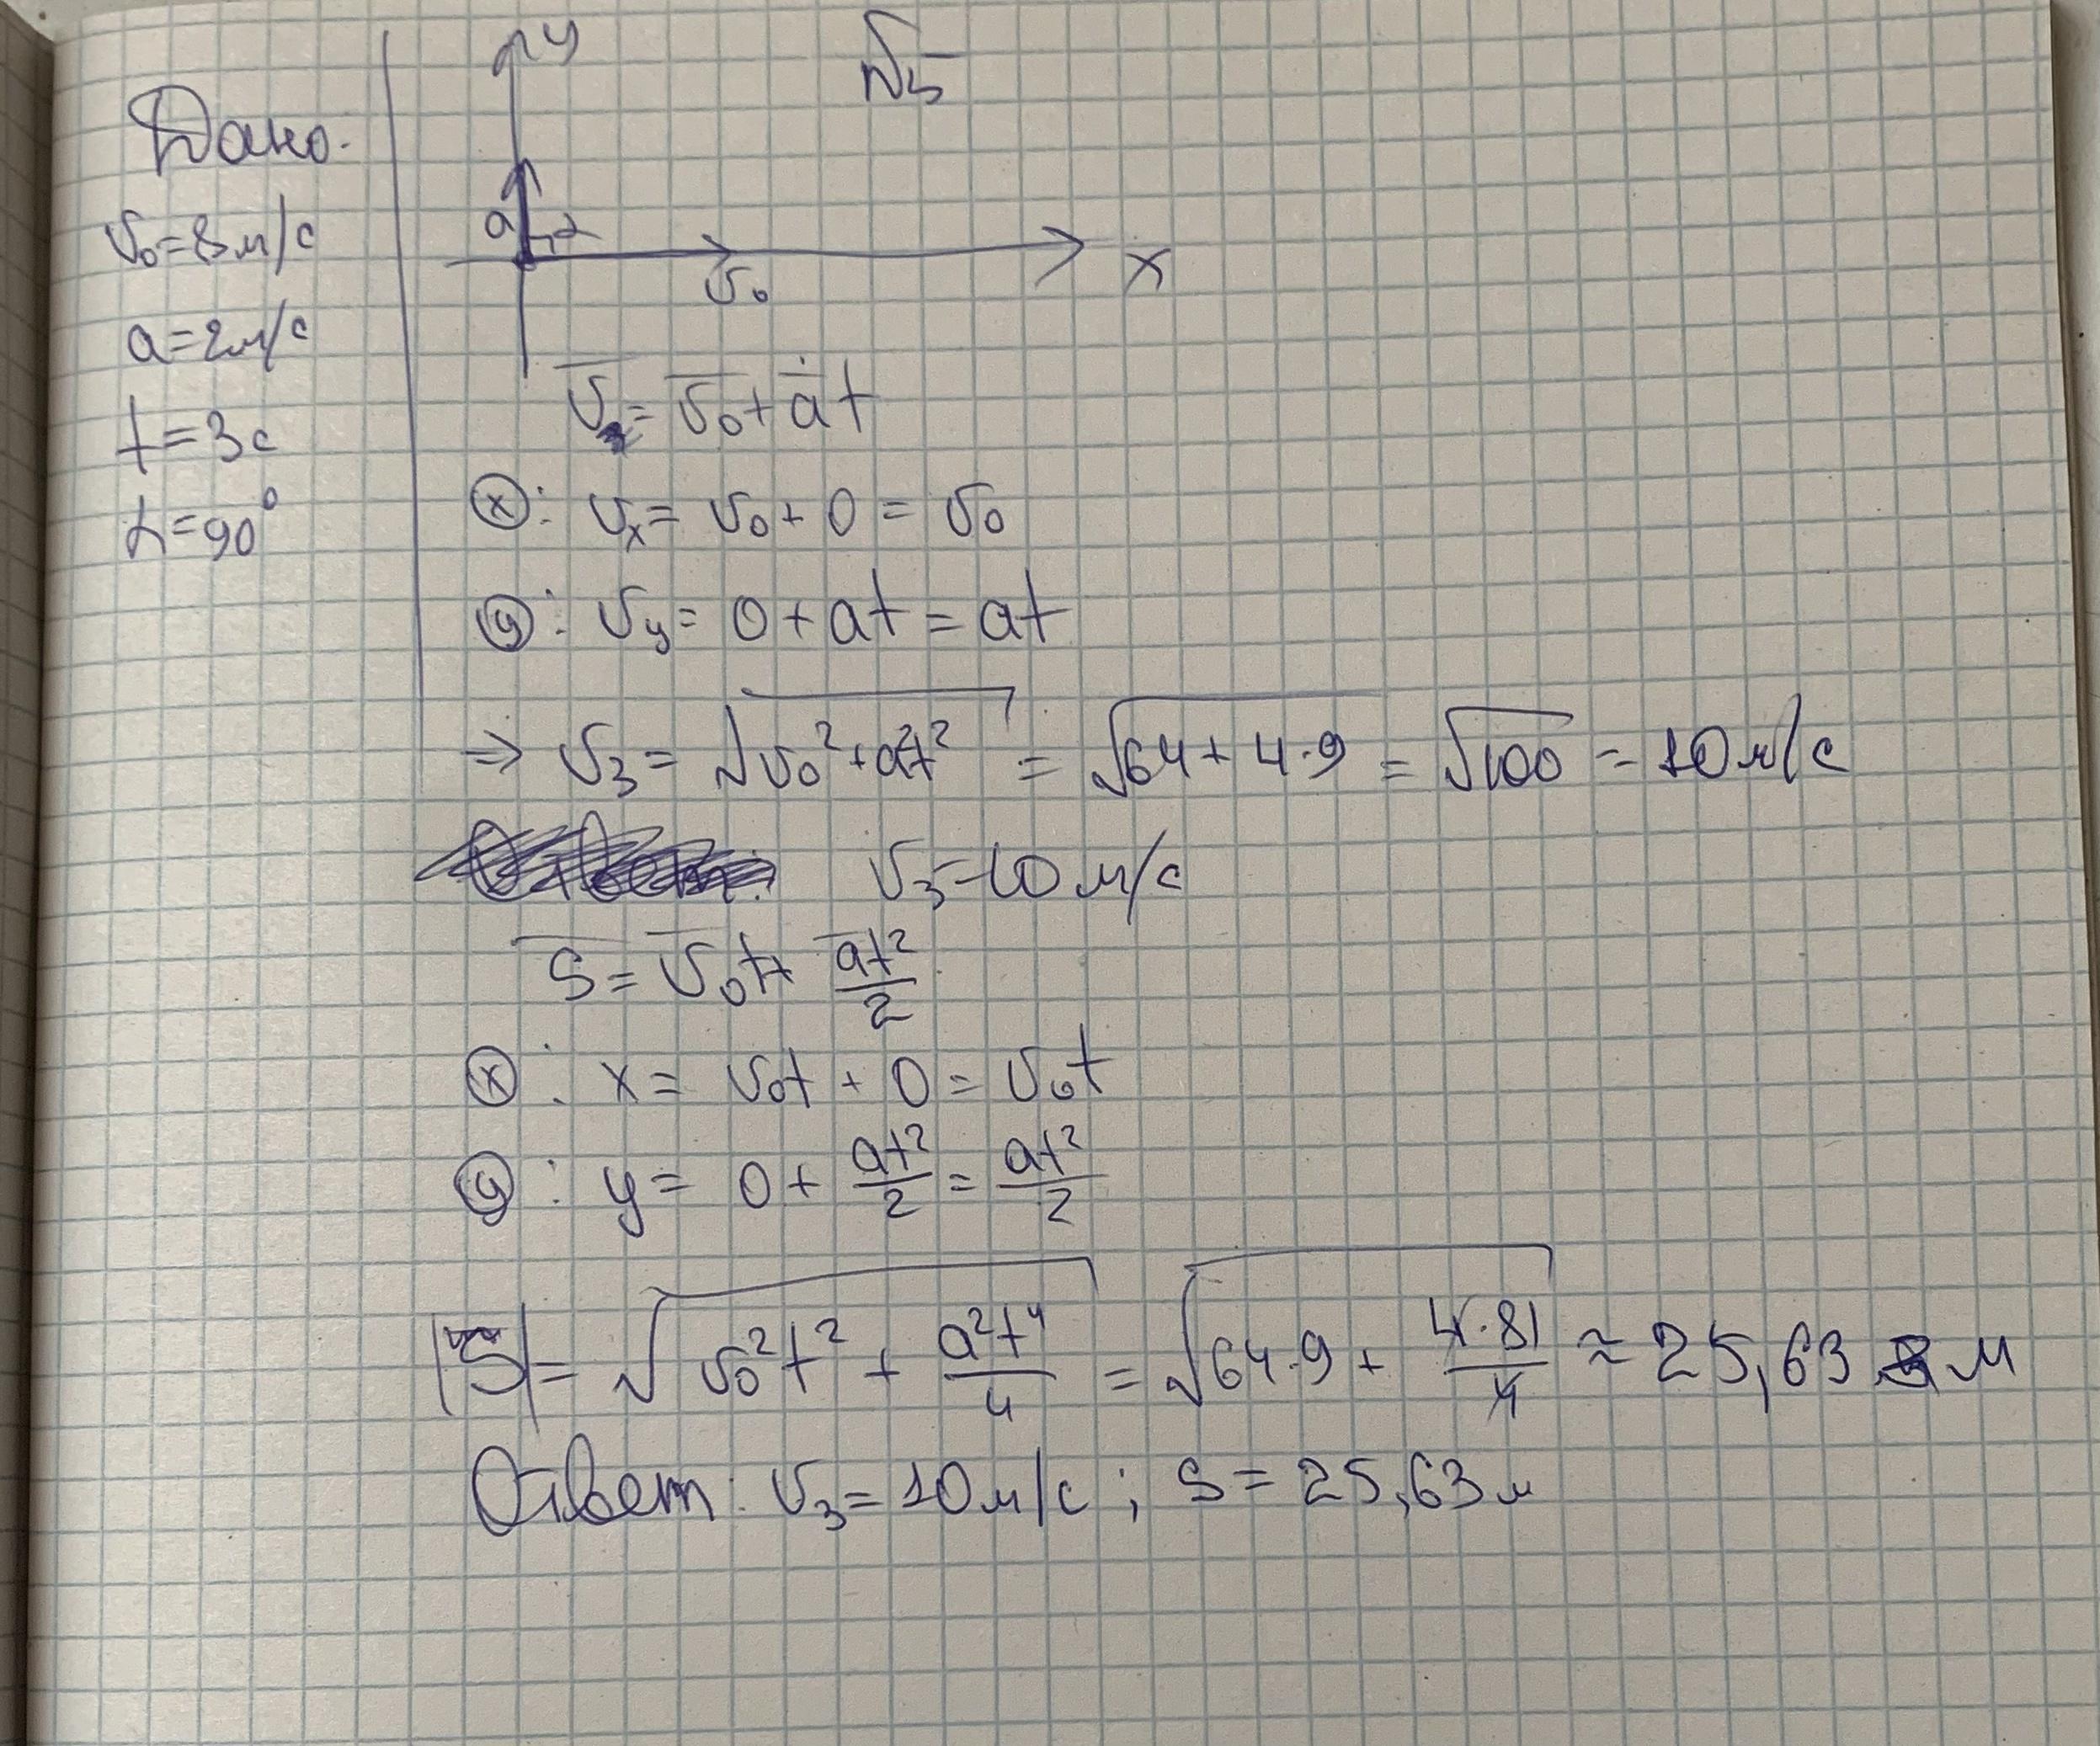 №5
Дано.
v₀=8м/с
a=2м/с
t=3с
α=90°
y
a
α
v₀
x
v̅ = v̅₀ + a̅t
ⓧ: vₓ = v₀ + 0 = v₀
ⓨ: v_y = 0 + at = at
⇒ v₃ = √(v₀² + a²t²) = √(64 + 4·9) = √100 = 10м/с
v₃ = 10 м/с
s̅ = v̅₀t + a̅t²/2
ⓧ: x = v₀t + 0 = v₀t
ⓨ: y = 0 + at²/2 = at²/2
|S̅| = √(v₀²t² + a²t⁴/4) = √(64·9 + 4·81/4) ≈ 25,63 м
Ответ: v₃ = 10м/с ; s = 25,63м